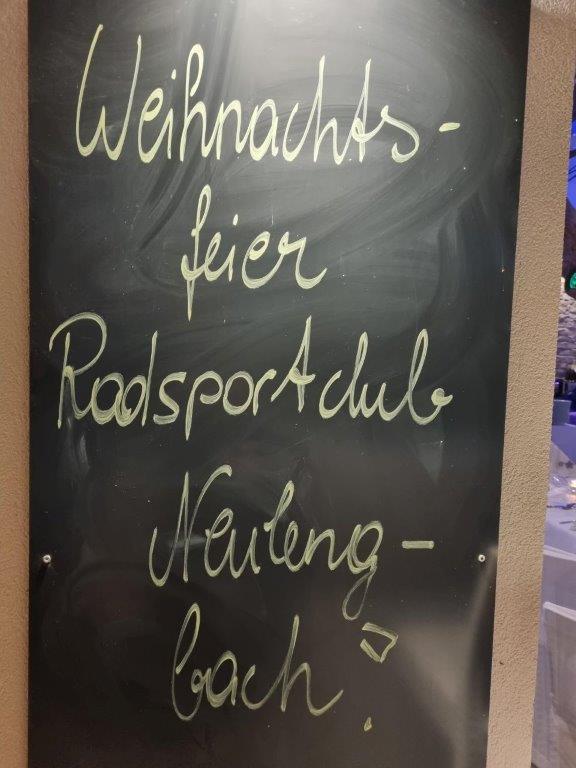 Weihnachts-
feier
Radsportclub
Neuleng-
bach!